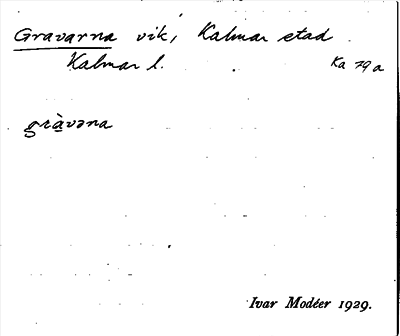 Gravarna vik, Kalmar stad.
Kalmar l. Ka 79 a
gràvəna
Ivar Modéer 1929.